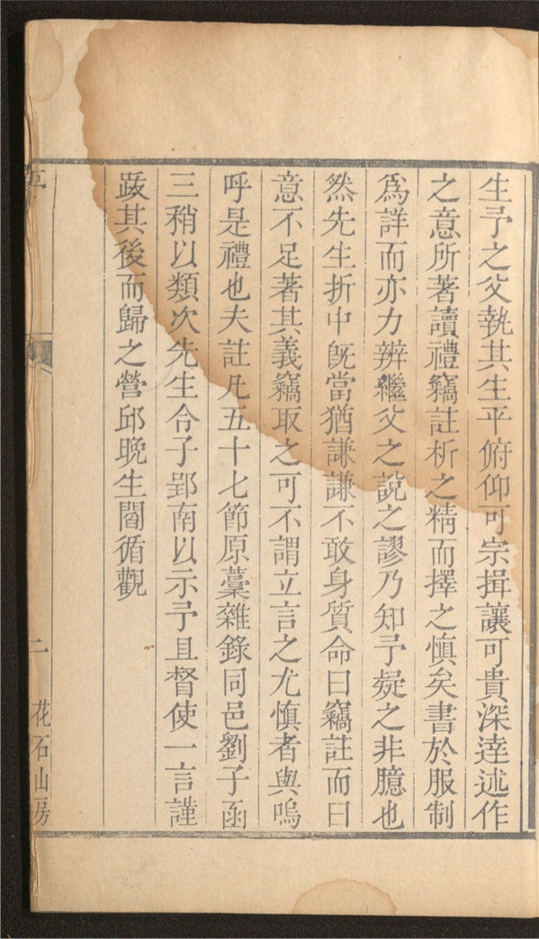 生予之父執其生平俯仰可宗揖讓可貴深逹述作
之意所著讀禮竊註析之精而擇之慎矣書於服制
爲詳而亦力辨繼父之說之謬乃知予疑之非臆也
然先生折中旣當猶謙謙不敢身質命曰竊註而曰
意不足著其義竊取之可不謂立言之尤慎者與嗚
呼是禮也夫註凡五十七節原藁雜錄同邑劉子函
三稍以類次先生令子郢南以示予且督使一言謹
跋其後而歸之營邱晚生閻循觀
二
花石山房